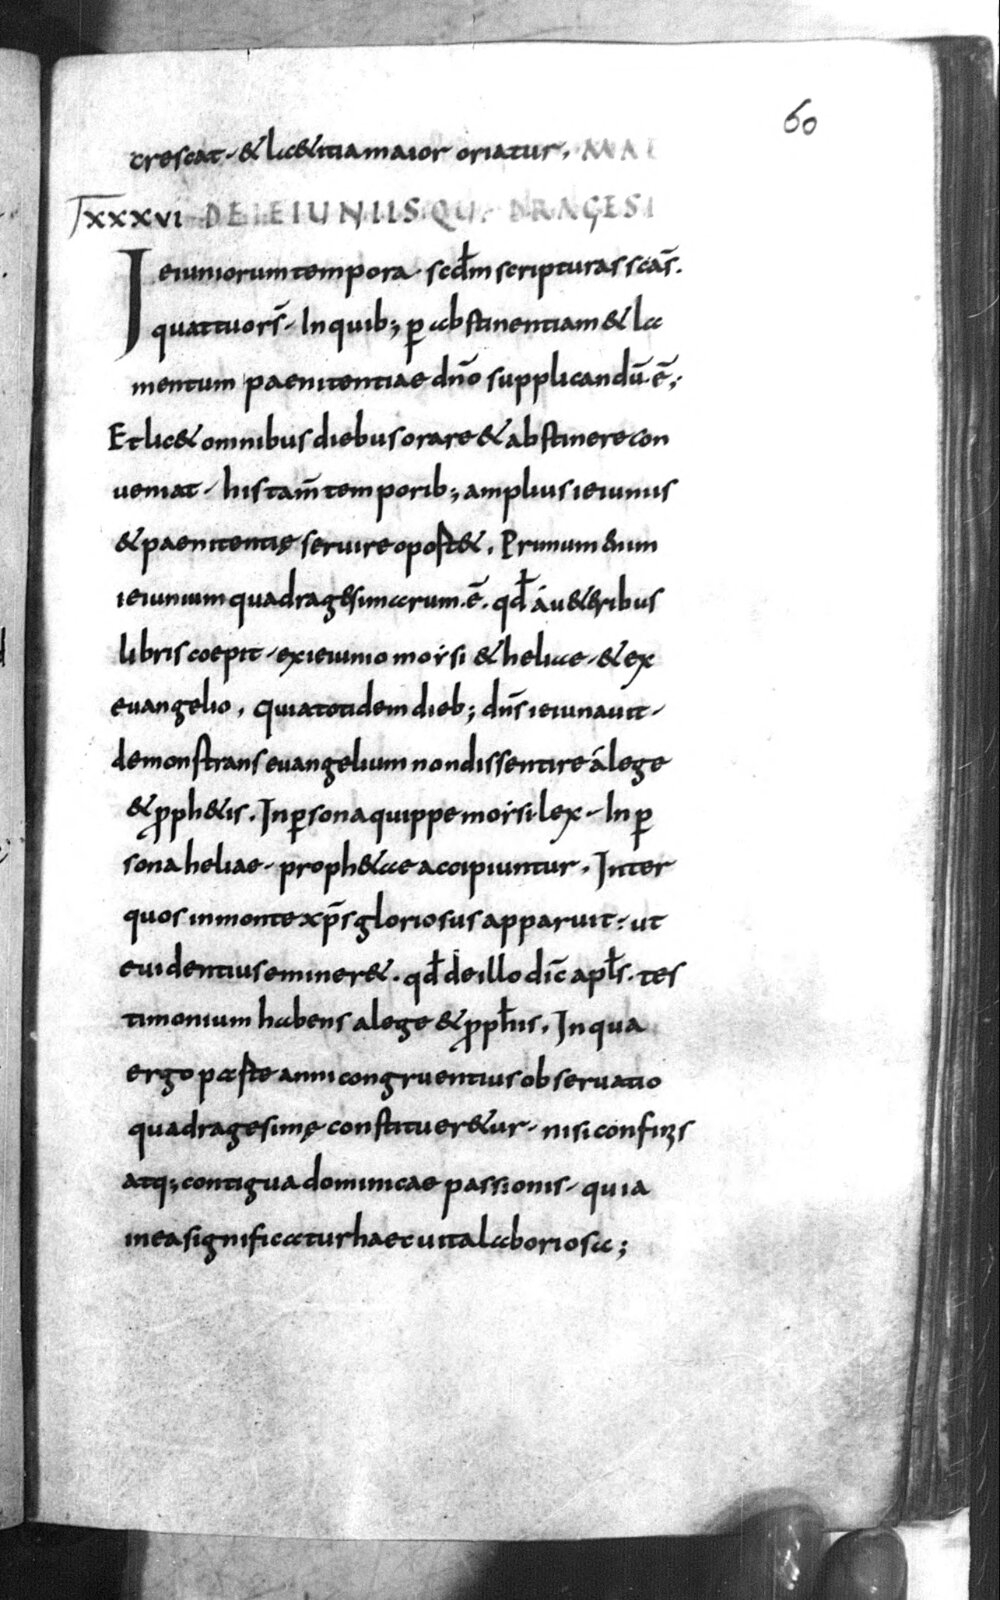 60
crescat. & laetitia maior oriatur. MAE
XXXVI DE IEIUNIIS QUADRAGESI
Ieiuniorum tempora. scdm scripturas scas̄.
quattuor s̄. In quib; ꝑ abstinentiam & la
mentum paenitentiae dn̄o supplicandū. ē;.
Et lic& omnibus diebus orare & abstinere con
ueniat. his tam̄ temporib; amplius ieiuniis
& paenitentię seruire oport&. Primum enim
ieiunium quadragesimarum. ē. qđ á u&eribus
libris coepit. ex ieiunio moẏsi & heliae. & ex
euangelio. quia totidem dieb; dn̄s ieiunauit.
demonstrans euangelium non dissentire á lege
& proph&is. In ꝑsona quippe moẏsi lex. In ꝑ
sona heliae. proph&ae accipiuntur. Inter
quos in monte xp̄s gloriosus apparuit. ut
euidentius eminer&. qđ de illo dic̄ apl̄s. tes
timonium habens a lege & proph̄is. In qua
ergo parte anni congruentius obseruatio
quadragesimę constituer&ur. nisi confinis
atq; contigua dominicae passionis. quia
in ea significatur haec uita laboriosa;